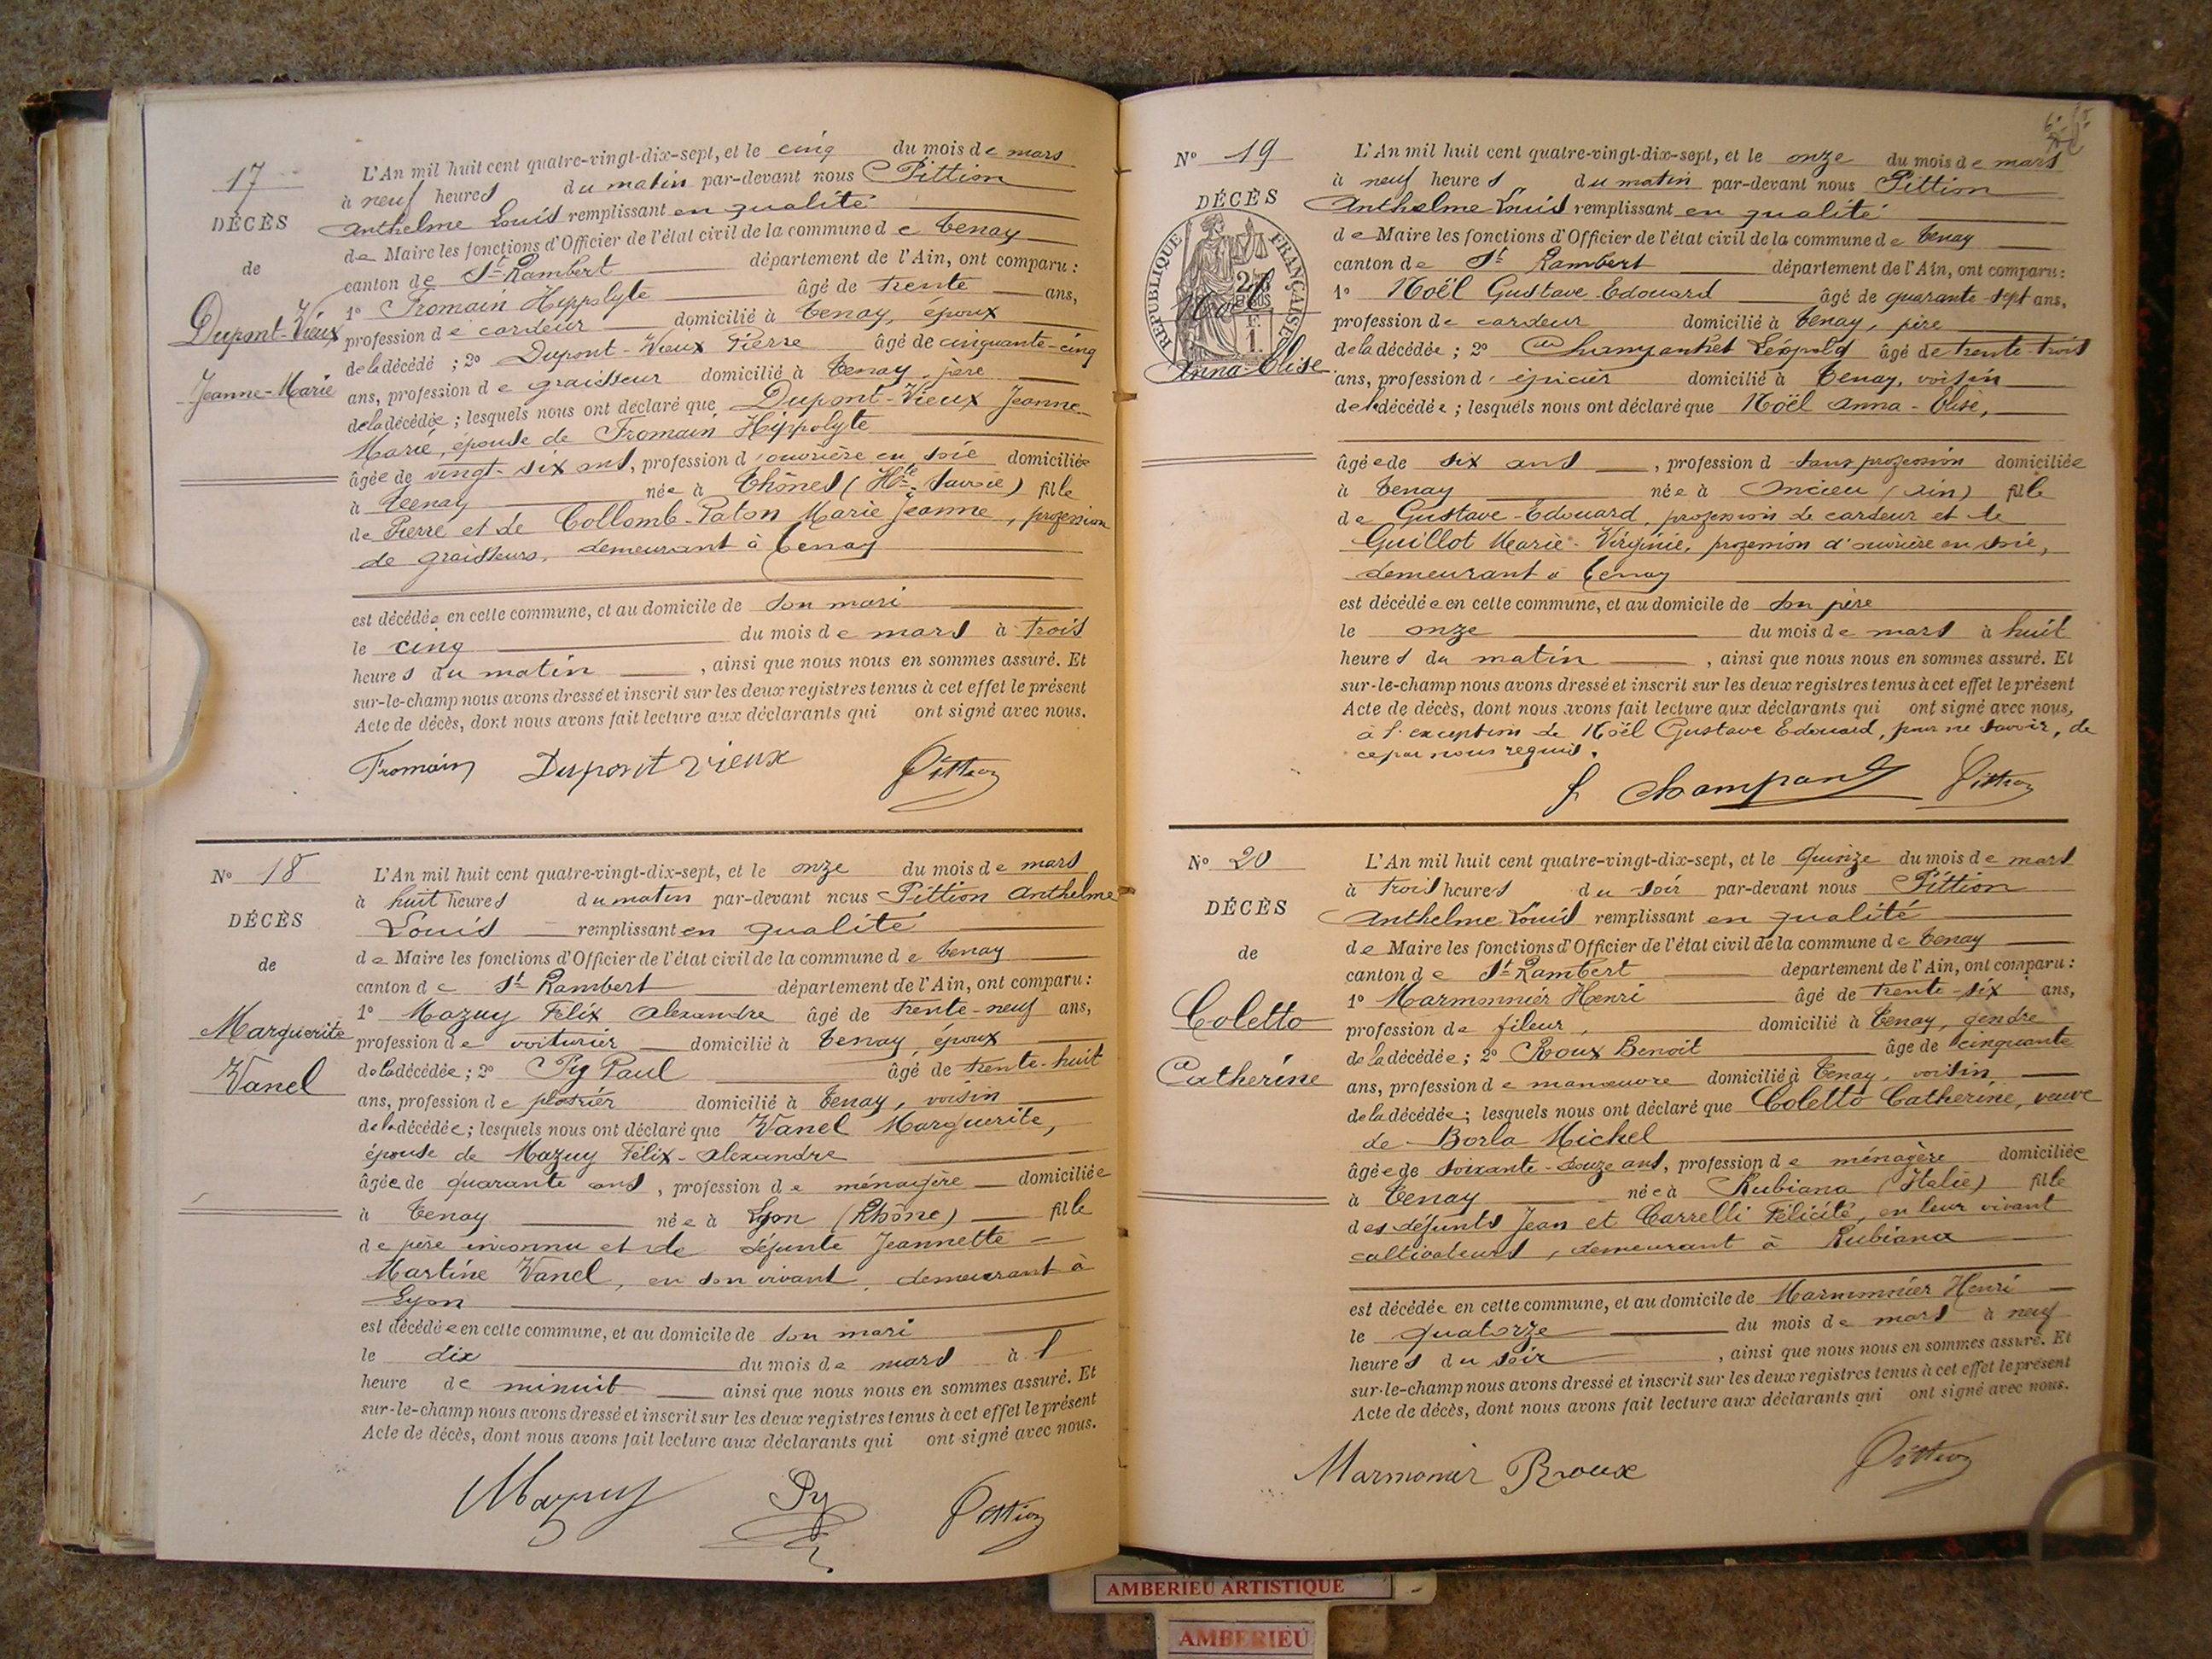 17
DÉCÈS
de
Dupont-Vieux
Jeanne-Marie
L'An mil huit cent quatre-vingt-dix-sept, et le cinq du mois de mars
à neuf heures du matin par-devant nous Pittion
Anthelme Louis remplissant en qualité
de Maire les fonctions d'Officier de l'état civil de la commune de Tenay
canton de St Rambert département de l'Ain, ont comparu :
1° Fromain Hippolyte âgé de trente ans,
profession de cardeur domicilié à Tenay, époux
de la décédé ; 2° Dupont-Vieux Pierre âgé de cinquante-cinq
ans, profession de graisseur domicilié à Tenay, père
de la décédée ; lesquels nous ont déclaré que Dupont-Vieux Jeanne-
Marie, épouse de Fromain Hippolyte
âgée de vingt-six ans, profession d'ouvrière en soie domiciliée
à Tenay née à Thônes (Hte Savoie) fille
de Pierre et de Collomb-Paton Marie Jeanne, profession
de graisseurs, demeurant à Tenay
est décédée en cette commune, et au domicile de son mari
le cinq du mois de mars à trois
heures du matin, ainsi que nous nous en sommes assuré. Et
sur-le-champ nous avons dressé et inscrit sur les deux registres tenus à cet effet le présent
Acte de décès, dont nous avons fait lecture aux déclarants qui ont signé avec nous.
Fromain Dupont vieux Pittion
N° 18
DÉCÈS
de
Marguerite
Vanel
L'An mil huit cent quatre-vingt-dix-sept, et le onze du mois de mars
à huit heures du matin par-devant nous Pittion Anthelme
Louis remplissant en qualité
de Maire les fonctions d'Officier de l'état civil de la commune de Tenay
canton de St Rambert département de l'Ain, ont comparu :
1° Mazuy Félix Alexandre âgé de trente-neuf ans,
profession de voiturier domicilié à Tenay, époux
de la décédée ; 2° Py Paul âgé de trente-huit
ans, profession de plâtrier domicilié à Tenay, voisin
de la décédée ; lesquels nous ont déclaré que Vanel Marguerite,
épouse de Mazuy Félix-Alexandre
âgée de quarante ans, profession de ménagère domiciliée
à Tenay née à Lyon (Rhône) fille
de père inconnu et de défunte Jeannette
Martine Vanel, en son vivant demeurant à
Lyon
est décédée en cette commune, et au domicile de son mari
le dix du mois de mars à l
heure de minuit ainsi que nous nous en sommes assuré. Et
sur-le-champ nous avons dressé et inscrit sur les deux registres tenus à cet effet le présent
Acte de décès, dont nous avons fait lecture aux déclarants qui ont signé avec nous.
Mazuy Py Pittion
N° 19
DÉCÈS
RÉPUBLIQUE FRANÇAISE
Noël
Anna-Élise
L'An mil huit cent quatre-vingt-dix-sept, et le onze du mois de mars
à neuf heures du matin par-devant nous Pittion
Anthelme Louis remplissant en qualité
de Maire les fonctions d'Officier de l'état civil de la commune de Tenay
canton de St Rambert département de l'Ain, ont comparu :
1° Noël Gustave Edouard âgé de quarante-sept ans,
profession de cardeur domicilié à Tenay, père
de la décédée ; 2° Léopold âgé de trente-trois
ans, profession d'épicier domicilié à Tenay, voisin
de la décédée ; lesquels nous ont déclaré que Noël Anna-Élise,
âgée de six ans, profession d sans profession domiciliée
à Tenay née à (Ain) fille
de Gustave-Edouard, profession de cardeur et de
Guillot Marie-Virginie, profession d'ouvrière en soie,
demeurant à Tenay
est décédée en cette commune, et au domicile de son père
le onze du mois de mars à huit
heures du matin, ainsi que nous nous en sommes assuré. Et
sur-le-champ nous avons dressé et inscrit sur les deux registres tenus à cet effet le présent
Acte de décès, dont nous avons fait lecture aux déclarants qui ont signé avec nous,
à l'exception de Noël Gustave Edouard, pour ne savoir, de
ce par nous requis.
Pittion
N° 20
DÉCÈS
de
Coletto
Catherine
L'An mil huit cent quatre-vingt-dix-sept, et le quinze du mois de mars
à trois heures du soir par-devant nous Pittion
Anthelme Louis remplissant en qualité
de Maire les fonctions d'Officier de l'état civil de la commune de Tenay
canton de St Rambert département de l'Ain, ont comparu :
1° Marmonnier Henri âgé de trente-six ans,
profession de fileur, domicilié à Tenay, gendre
de la décédée ; 2° Roux Benoit âgé de cinquante
ans, profession de manœuvre domicilié à Tenay, voisin
de la décédée ; lesquels nous ont déclaré que Coletto Catherine, veuve
de Borla Michel
âgée de soixante-douze ans, profession de ménagère domiciliée
à Tenay née à Rubiana (Italie) fille
des défunts Jean et Carrelli Félicité, en leur vivant
cultivateurs, demeurant à Rubiana
est décédée en cette commune, et au domicile de Marmonnier Henri
le quatorze du mois de mars à neuf
heures du soir, ainsi que nous nous en sommes assuré. Et
sur-le-champ nous avons dressé et inscrit sur les deux registres tenus à cet effet le présent
Acte de décès, dont nous avons fait lecture aux déclarants qui ont signé avec nous.
Marmonier Roux Pittion
AMBERIEU ARTISTIQUE
AMBERIEU